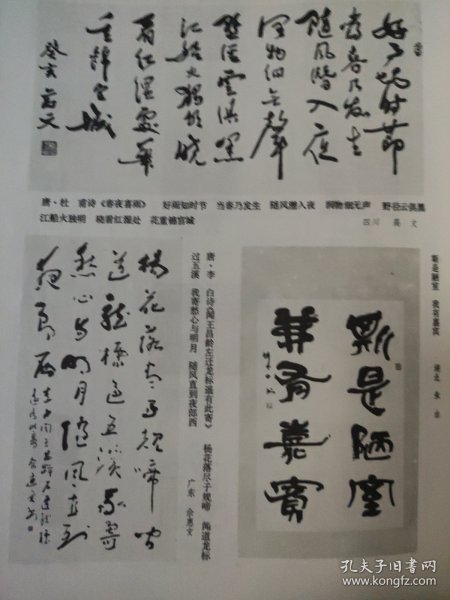 好雨知时節
当春乃发生
随风潜入夜
润物细无聲
野徑雲俱黑
江船火獨明曉
看红濕處華
重錦官城
癸亥高文
唐·杜 甫诗《春夜喜雨》 好雨知时节 当春乃发生 随风潜入夜 润物细无声 野径云俱黑
江船火独明 晓看红湿处 花重锦官城
四川 高 文
斯是陋室 我有嘉宾
湖北
斯是陋室
我有嘉賓
唐·李 白诗《闻王昌龄左迁龙标遥有此寄》 杨花落尽子规啼 闻道龙标
过五溪 我寄愁心与明月 随风直到夜郎西
广东 余惠文
楊花落尽子規啼闻
道龍標過五溪我寄
愁心与明月隨風直到
夜郎西
孔夫子旧书网
www.kongfz.com